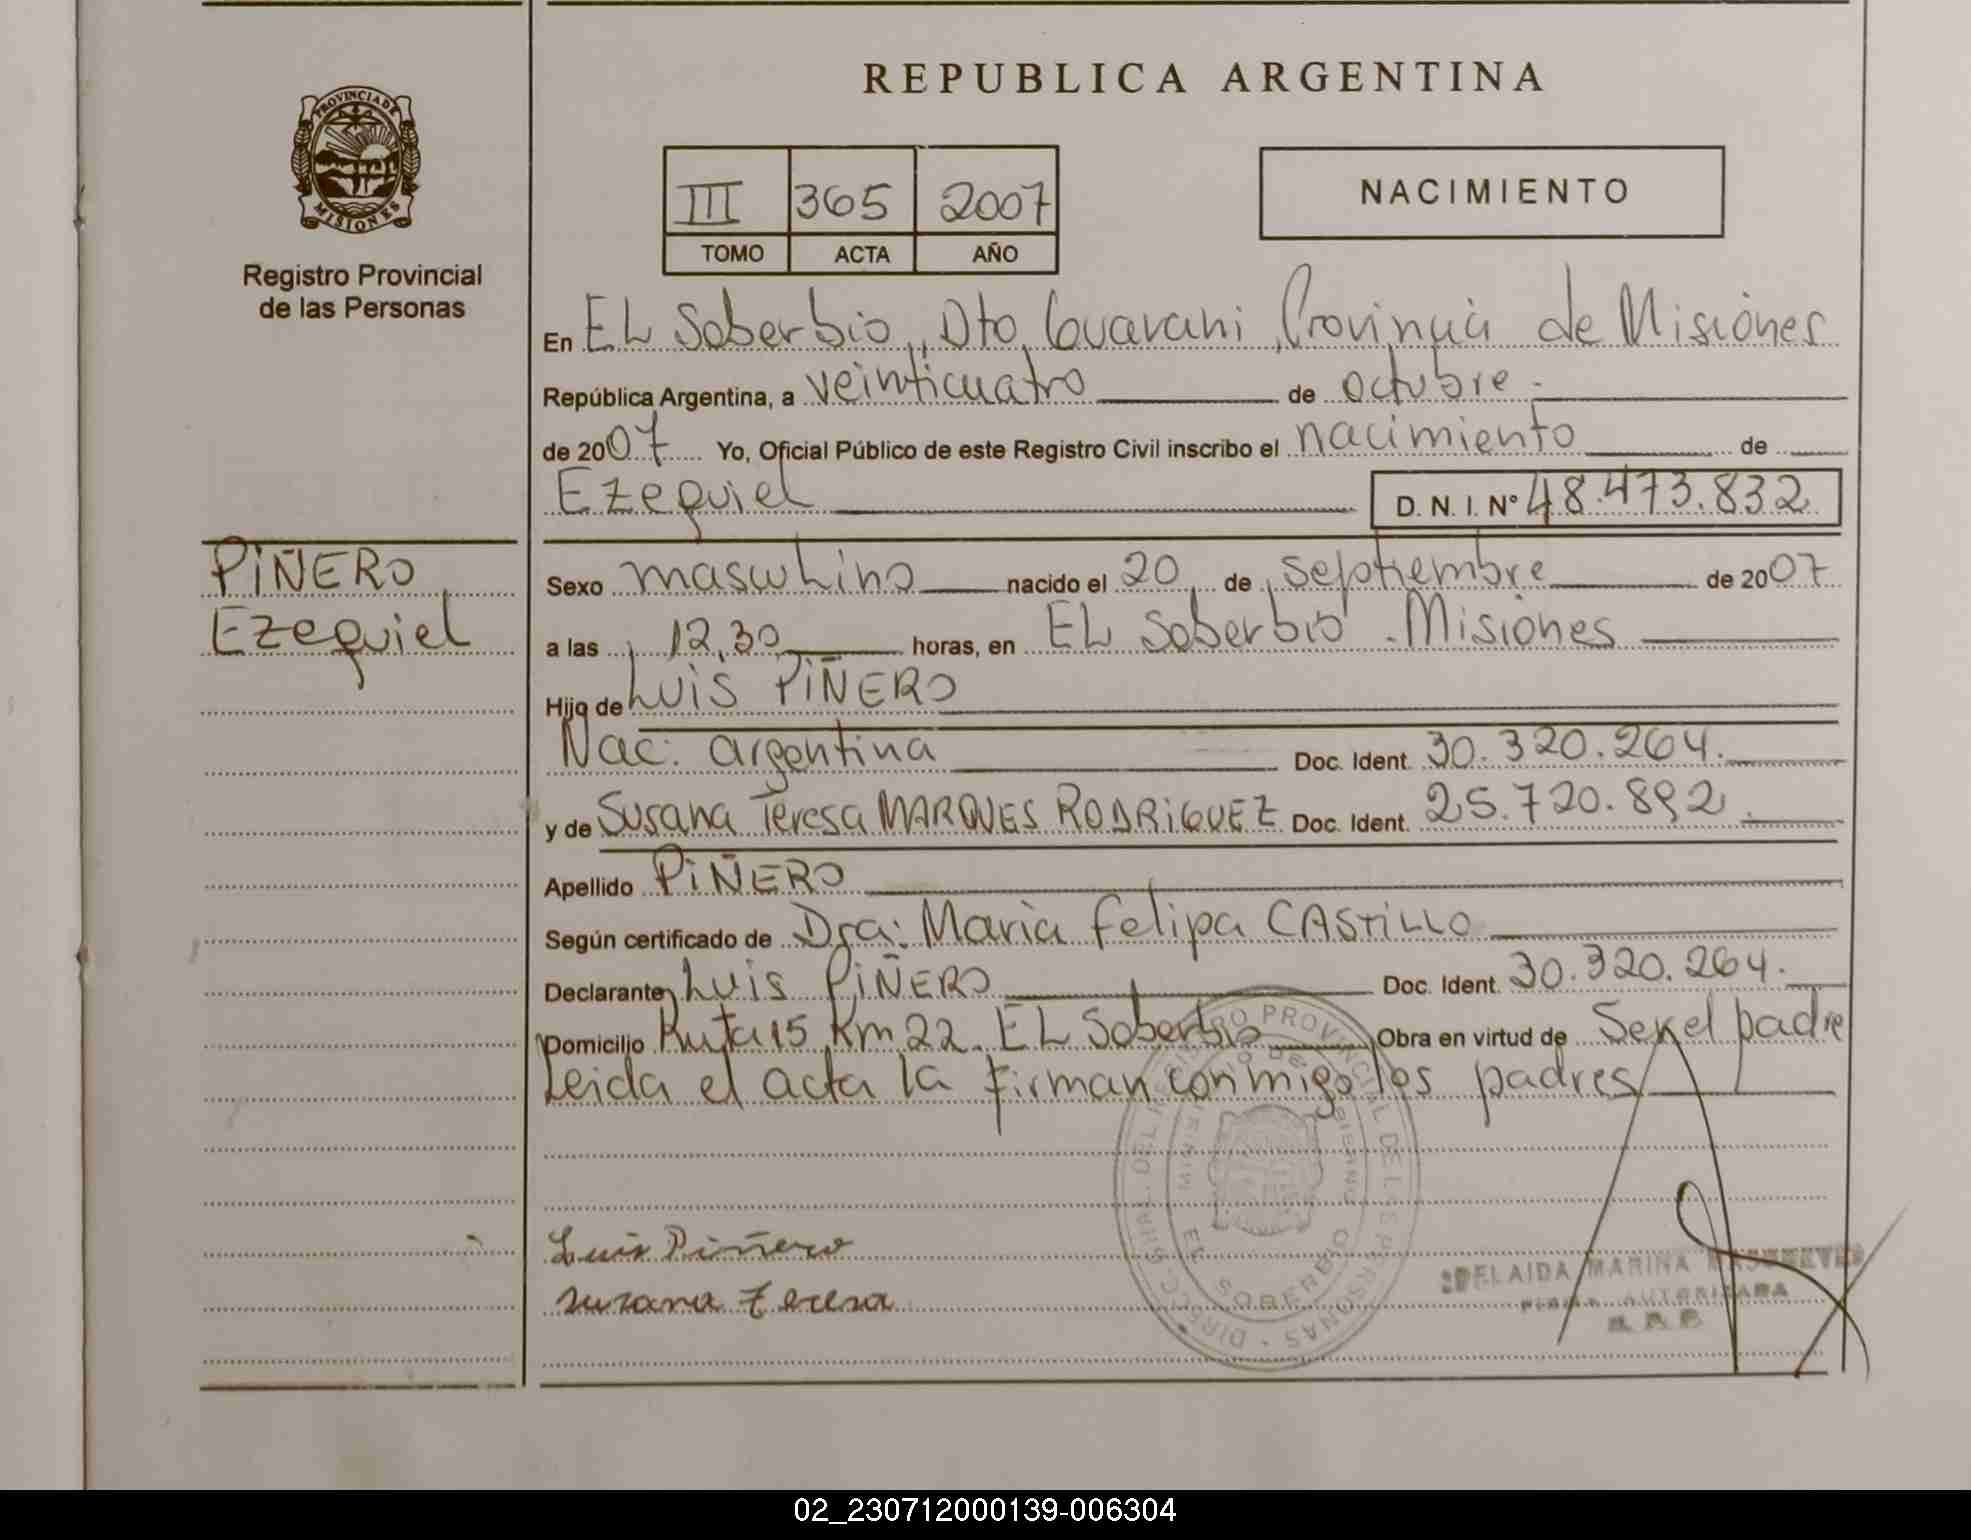 REPUBLICA ARGENTINA
PROVINCIA DE
MISIONES
Registro Provincial
de las Personas
III 365 2007
TOMO ACTA AÑO
NACIMIENTO
En EL Soberbio, Dto Guarani, Provincia de Misiones
República Argentina, a veinticuatro de octubre.
de 2007 Yo, Oficial Público de este Registro Civil inscribo el nacimiento de
Ezequiel D. N. I. N° 48.473.832
PIÑERO
Ezequiel
Sexo masculino nacido el 20 de septiembre de 2007
a las 12,30 horas, en EL Soberbio. Misiones
Hijo de Luis PIÑERO
Nac: argentina Doc. Ident. 30.320.264.
y de Susana Teresa MARQUES RODRIGUEZ Doc. Ident. 25.720.892.
Apellido PIÑERO
Según certificado de Dra: Maria Felipa CASTILLO
Declarante Luis PIÑERO Doc. Ident. 30.320.264.
Domicilio Ruta 15 Km 22. EL Soberbio Obra en virtud de Ser el padre
Leida el acta la firman conmigo los padres
Luis Piñero
Susana Teresa
EL SOBERBIO
ADELAIDA MARINA
FIRMA AUTORIZADA
02_230712000139-006304